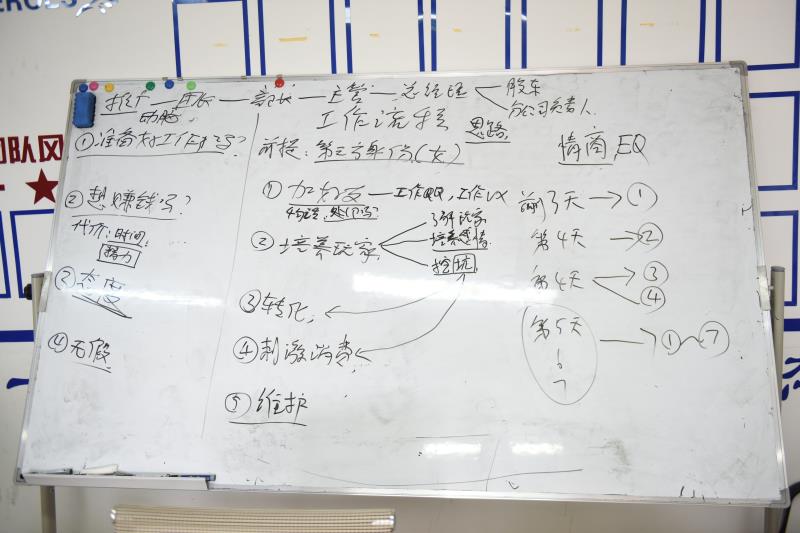 推广 — 团长 — 部长 — 主管 — 总经理
股东
分公司负责人
动脑
工作流程
思路
①准备好工作了吗?
前提:第三方身份(女)
情商,EQ
②想赚钱吗?
代价:时间,
努力
③态度
④无假
①加好友 — 工作QQ,工作VX
②培养玩家
了解玩家
培养感情
挖坑
③转化,
④刺激消费
⑤维护
前3天 → ①
第4天 → ②
第4天 → ③
④
第5天
6
7
① ⑦
团队风